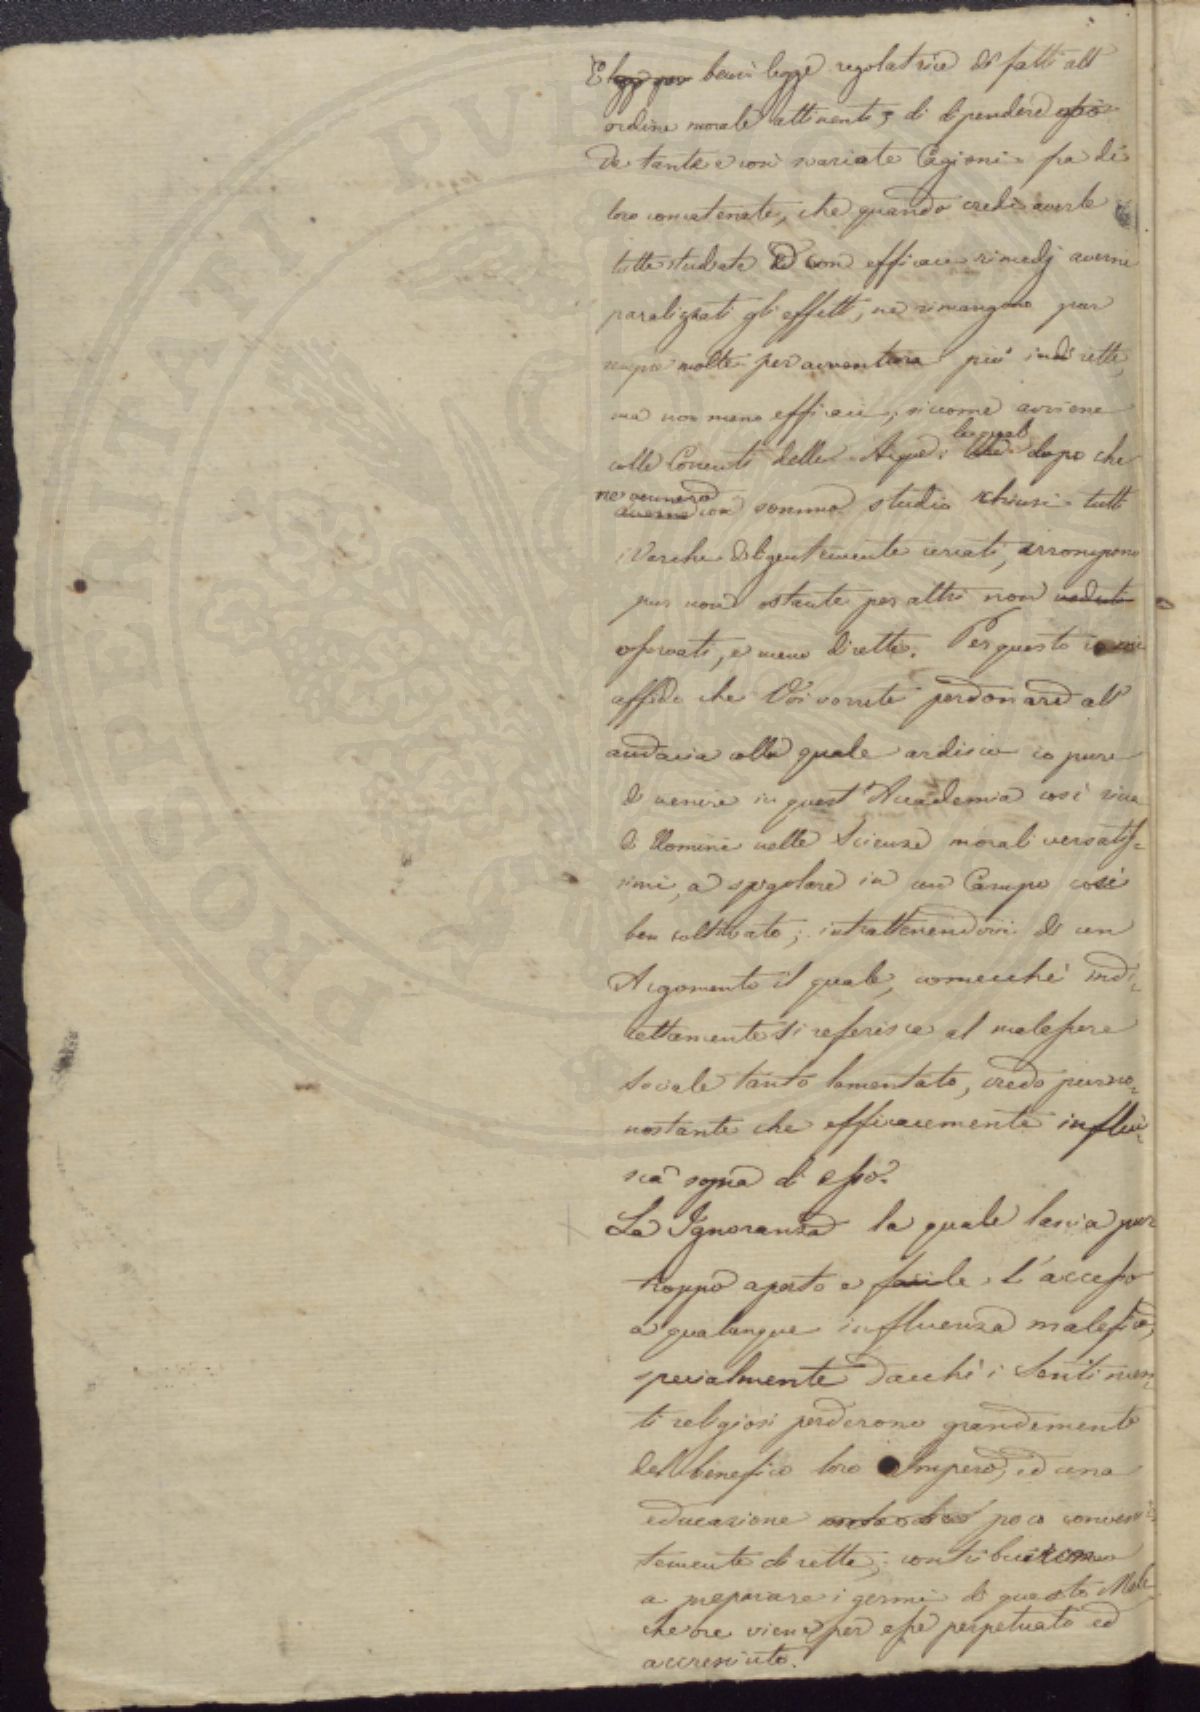 E legge per bensi legge regolatrice di fatti all'
ordine morale attinenti, di dipendere esso
da tante e così svariate Cagioni fra di
loro concatenate, che quando credi averle
tutte studiate ed con efficaci rimedj averne
paralizzati gli effetti, ne rimangono pur
sempre molte per avventura più indirette,
ma non meno efficaci, siccome avviene
colle Correnti delle Acque: le quali dopo che
ne vennero
averne con sommo studio chiusi tutti
i Varchi diligentemente cercati, irrompono
pur non ostante per altri non veduti
osservati, e meno diretti. Per questo io mi
affido che Voi vorrete perdonare all'
audacia colla quale ardisco io pure
di venire in quest'Accademia così ricca
di Uomini nelle Scienze morali versatis-
simi, a spigolare in un Campo così
ben coltivato; intrattenendovi di un
Argomento il quale, comecchè indi-
rettamente si referisca al malessere
Sociale tanto lamentato, credo purno-
nostante che efficacemente influi-
sca sopra di esso.
La Ignoranza la quale lascia pur
troppo aperto e facile l'accesso
a qualunque influenza malefica,
specialmente dacchè i Sentimen-
ti religiosi perderono grandemente
del benefico loro Impero, ed una
educazione poco conveni-
temente diretta, contribuirono
a preparare i germi di questo Male
che ora viene per esse perpetuato ed
accresciuto.
POSPITALARI PVBL